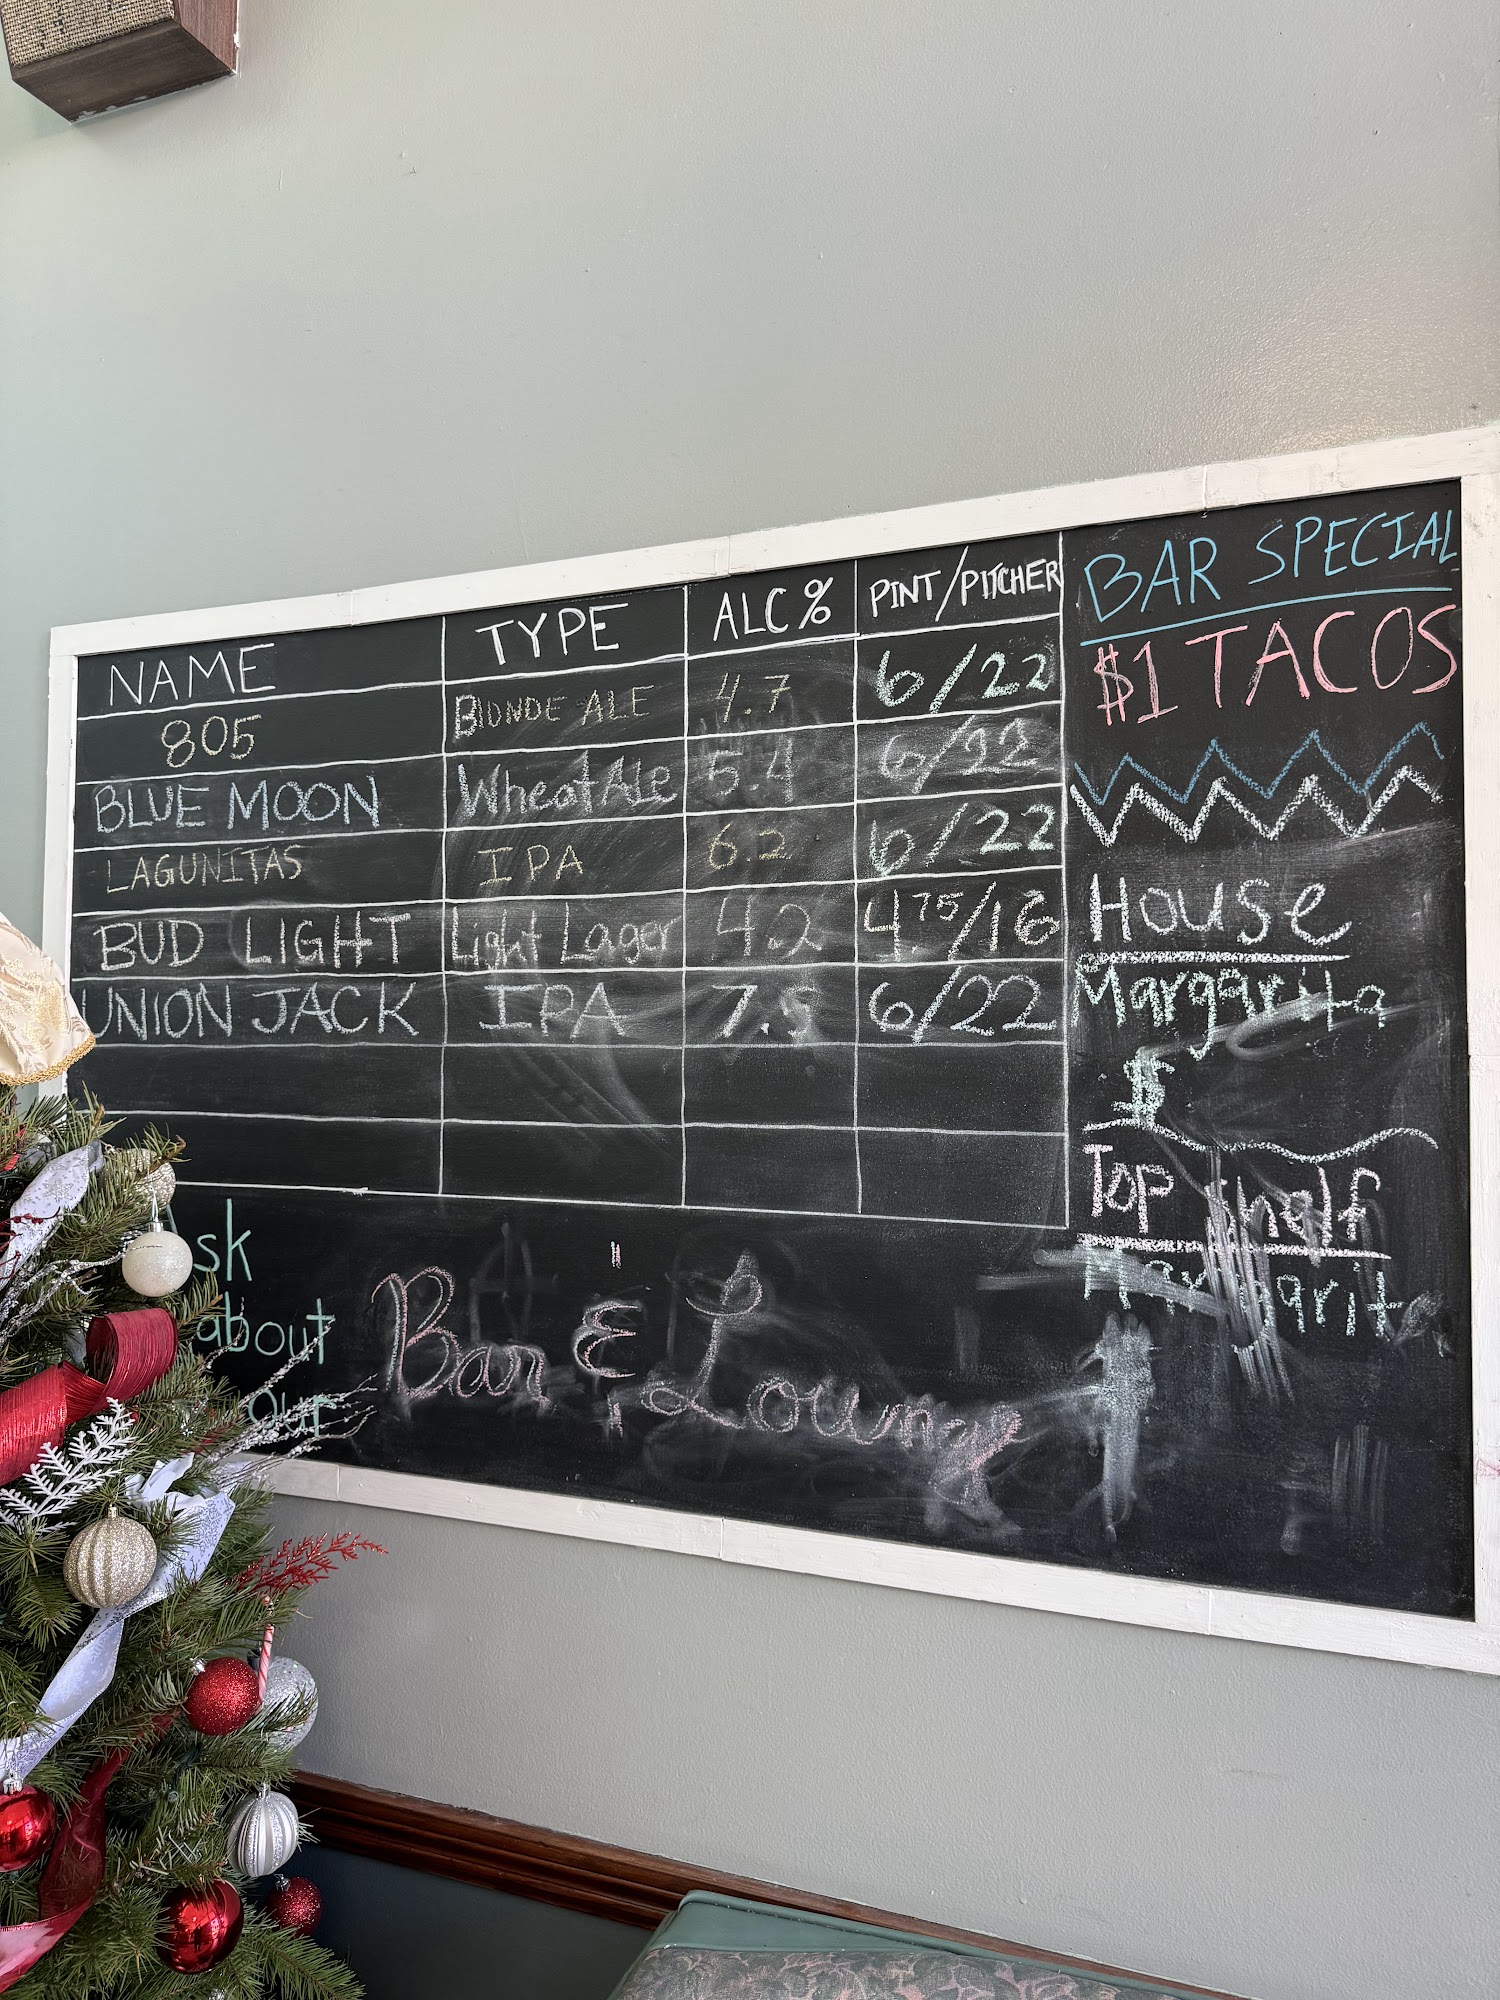 NAME TYPE ALC% PINT/PITCHER
805 BLONDE ALE 4.7 6/22
BLUE MOON Wheat Ale 5.4 6/22
LAGUNITAS IPA 6.2 6/22
BUD LIGHT Light Lager 4.2 4.75/16
UNION JACK IPA 7.5 6/22
Ask
about
our
Bar & Lounge
BAR SPECIAL
$1 TACOS
House
Margarita
$
Top Shelf
Margarita